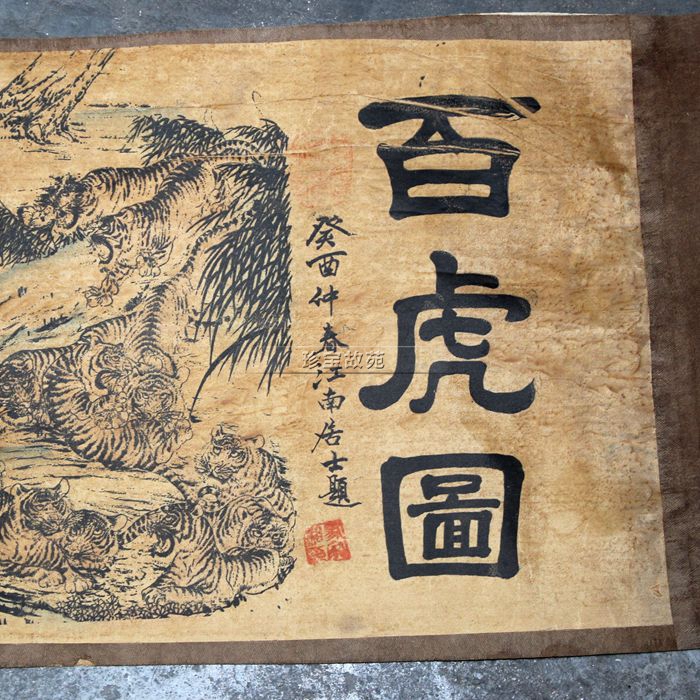 百虎圖
癸酉仲春江南居士題
珍宝故苑